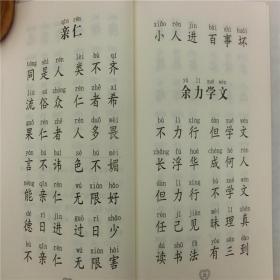 qīn rén
亲仁
tóng shì rén lèi bù qí
同是人 类不齐
liú sú zhòng rén zhě xī
流俗众 仁者希
guǒ rén zhě rén duō wèi
果仁者 人多畏
yán bú huì sè bú mèi
言不讳 色不媚
néng qīn rén wú xiàn hǎo
能亲仁 无限好
dé rì jìn guò rì shǎo
德日进 过日少
bù qīn rén wú xiàn hài
不亲仁 无限害
xiǎo rén jìn bǎi shì huài
小人进 百事坏
yú lì xué wén
余力学文
bú lì xíng dàn xué wén
不力行 但学文
zhǎng fú huá chéng hé rén
长浮华 成何人
dàn lì xíng bù xué wén
但力行 不学文
rèn jǐ jiàn mèi lǐ zhēn
任己见 昧理真
dú shū fǎ yǒu sān dào
读书法 有三到